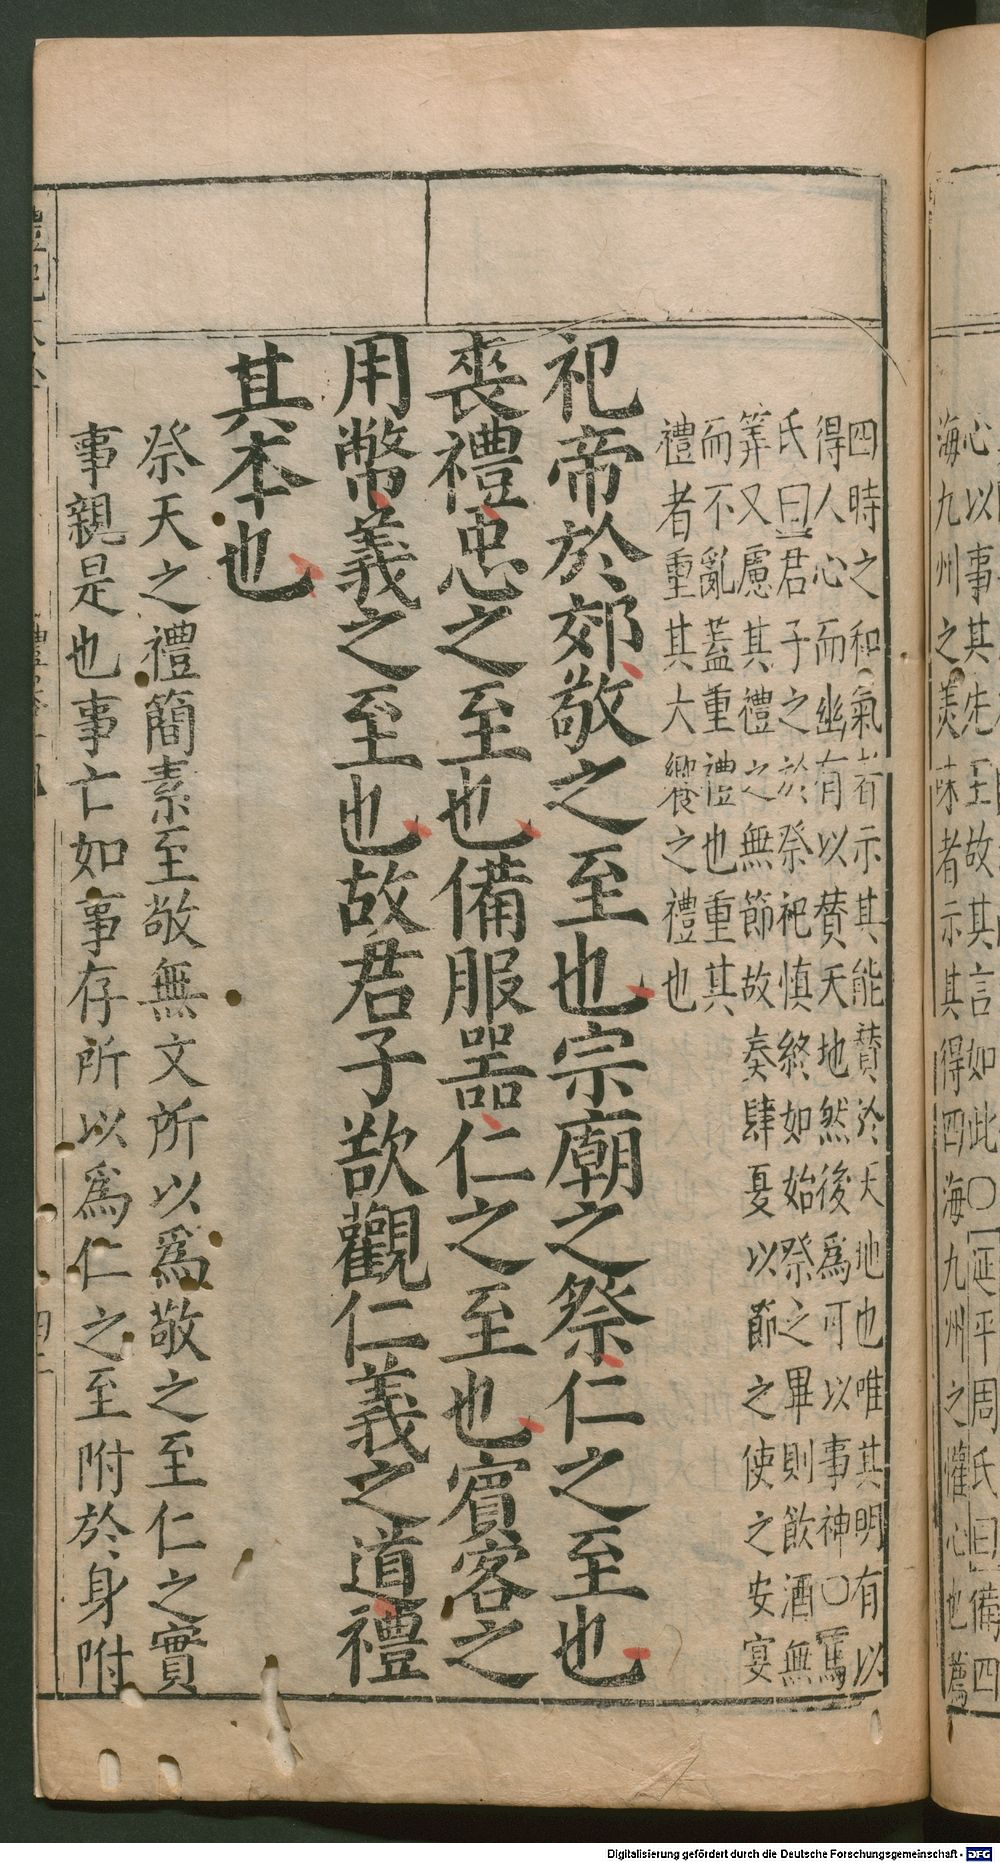 四時之和氣者示其能贊於天地也唯其明有以
得人心而幽有以賛天地然後爲可以事神○馬
氏曰君子之於祭祀慎終如始祭之畢則飲酒無
筭又慮其禮之無節故奏肆夏以節之使之安宴
而不亂蓋重禮也重其
禮者重其大饗之禮也
祀帝於郊敬之至也宗廟之祭仁之至也
喪禮忠之至也備服器仁之至也賓客之
用幣義之至也故君子欲觀仁義之道禮
其本也
祭天之禮簡素至敬無文所以爲敬之至仁之實
事親是也事亡如事存所以爲仁之至附於身附
心以事其先王故其言如此○延平周氏曰備四
海九州之美味者示其得四海九州之懽心也薦
Digitalisierung gefördert durch die Deutsche Forschungsgemeinschaft - DFG